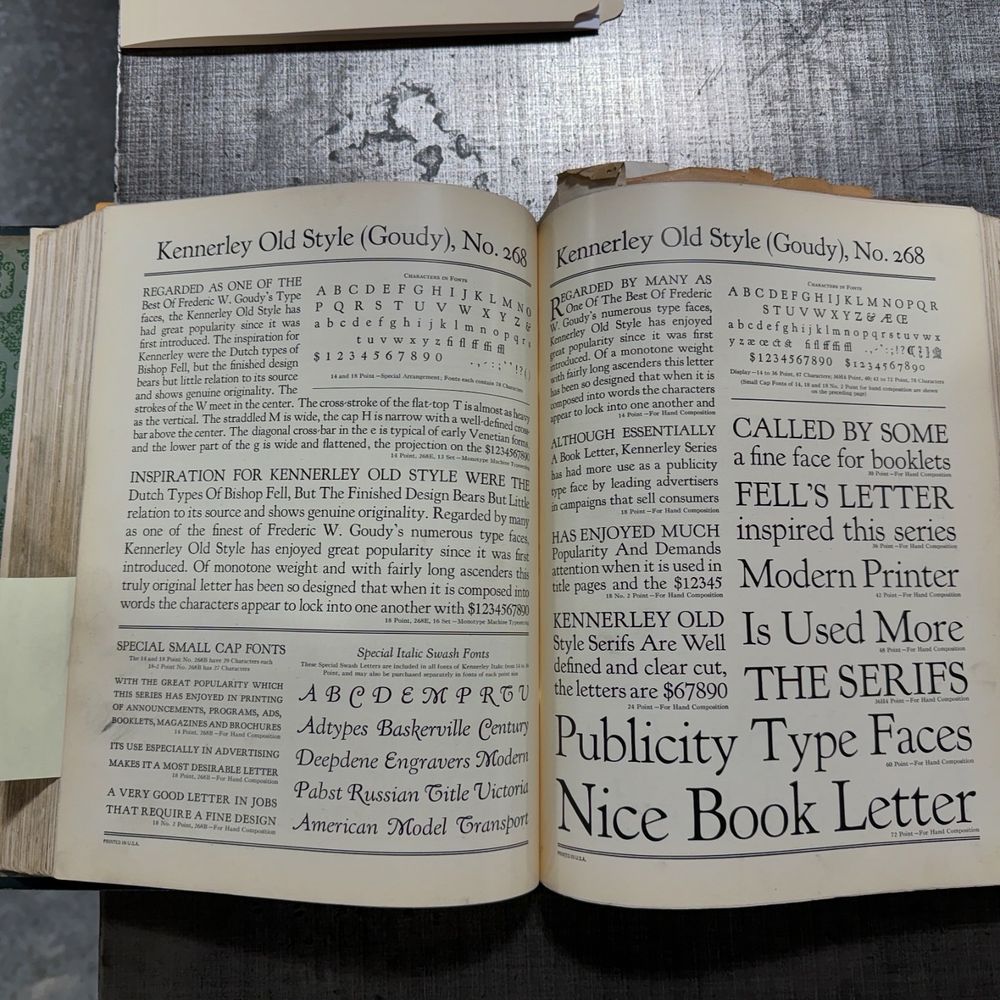 Kennerley Old Style (Goudy), No. 268
REGARDED AS ONE OF THE
Best Of Frederic W. Goudy's Type
faces, the Kennerley Old Style has
had great popularity since it was
first introduced. The inspiration for
Kennerley were the Dutch types of
Bishop Fell, but the finished design
bears but little relation to its source
and shows genuine originality. The
strokes of the W meet in the center. The cross-stroke of the flat-top T is almost as heavy
as the vertical. The straddled M is wide, the cap H is narrow with a well-defined cross-
bar above the center. The diagonal cross-bar in the e is typical of early Venetian forms,
and the lower part of the g is wide and flattened, the projection on the $1234567890
14 Point, 268E, 13 Set—Monotype Machine Typesetting
Characters in Fonts
A B C D E F G H I J K L M N O
P Q R S T U V W X Y Z &
a b c d e f g h i j k l m n o p q r s
t u v w x y z fi ff ffi ffl
$ 1 2 3 4 5 6 7 8 9 0 . , - ' : ; ! ? ( )
14 and 18 Point—Special Arrangement; Fonts each contain 78 Characters
INSPIRATION FOR KENNERLEY OLD STYLE WERE THE
Dutch Types Of Bishop Fell, But The Finished Design Bears But Little
relation to its source and shows genuine originality. Regarded by many
as one of the finest of Frederic W. Goudy's numerous type faces,
Kennerley Old Style has enjoyed great popularity since it was first
introduced. Of monotone weight and with fairly long ascenders this
truly original letter has been so designed that when it is composed into
words the characters appear to lock into one another with $1234567890
18 Point, 268E, 16 Set—Monotype Machine Typesetting
SPECIAL SMALL CAP FONTS
The 14 and 18 Point No. 268B have 29 Characters each
18-2 Point No. 268B has 27 Characters
WITH THE GREAT POPULARITY WHICH
THIS SERIES HAS ENJOYED IN PRINTING
OF ANNOUNCEMENTS, PROGRAMS, ADS,
BOOKLETS, MAGAZINES AND BROCHURES
14 Point, 268B—For Hand Composition
ITS USE ESPECIALLY IN ADVERTISING
MAKES IT A MOST DESIRABLE LETTER
18 Point, 268B—For Hand Composition
A VERY GOOD LETTER IN JOBS
THAT REQUIRE A FINE DESIGN
18 No. 2 Point, 268B—For Hand Composition
Special Italic Swash Fonts
These Special Swash Letters are included in all fonts of Kennerley Italic from 14 to 36
Point, and may also be purchased separately in fonts of each point size
A B C D E M P R T U
Adtypes Baskerville Century
Deepdene Engravers Modern
Pabst Russian Title Victoria
American Model Transport
PRINTED IN U.S.A.
Kennerley Old Style (Goudy), No. 268
REGARDED BY MANY AS
One Of The Best Of Frederic
W. Goudy's numerous type faces,
Kennerley Old Style has enjoyed
great popularity since it was first
introduced. Of a monotone weight
with fairly long ascenders this letter
has been so designed that when it is
composed into words the characters
appear to lock into one another and
14 Point—For Hand Composition
ALTHOUGH ESSENTIALLY
A Book Letter, Kennerley Series
has had more use as a publicity
type face by leading advertisers
in campaigns that sell consumers
18 Point—For Hand Composition
HAS ENJOYED MUCH
Popularity And Demands
attention when it is used in
title pages and the $12345
18 No. 2 Point—For Hand Composition
KENNERLEY OLD
Style Serifs Are Well
defined and clear cut,
the letters are $67890
24 Point—For Hand Composition
Characters in Fonts
A B C D E F G H I J K L M N O P Q R
S T U V W X Y Z & Æ Œ
a b c d e f g h i j k l m n o p q r s t u v w x
y z æ œ ct st fi fl ff ffi ffl . , - ' : ; ! ? ( [
$1234567890 $1234567890
Display—14 to 36 Point, 87 Characters; 36H4 Point, 60; 42 to 72 Point, 78 Characters
(Small Cap Fonts of 14, 18 and 18 No. 2 Point for hand composition are shown
on the preceding page)
CALLED BY SOME
a fine face for booklets
30 Point—For Hand Composition
FELL'S LETTER
inspired this series
36 Point—For Hand Composition
Modern Printer
42 Point—For Hand Composition
Is Used More
48 Point—For Hand Composition
THE SERIFS
36H4 Point—For Hand Composition
Publicity Type Faces
60 Point—For Hand Composition
Nice Book Letter
72 Point—For Hand Composition
PRINTED IN U.S.A.